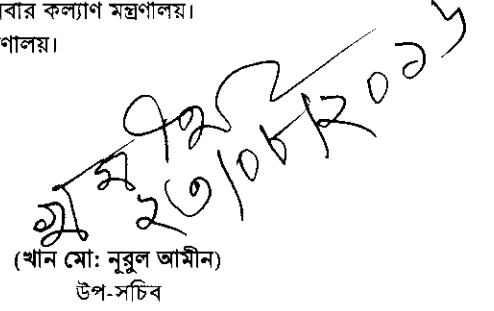 বার কল্যাণ মন্ত্রণালয়।
ণালয়।
২৩/০৮/২০১৬
(খান মো: নূরুল আমীন)
উপ-সচিব